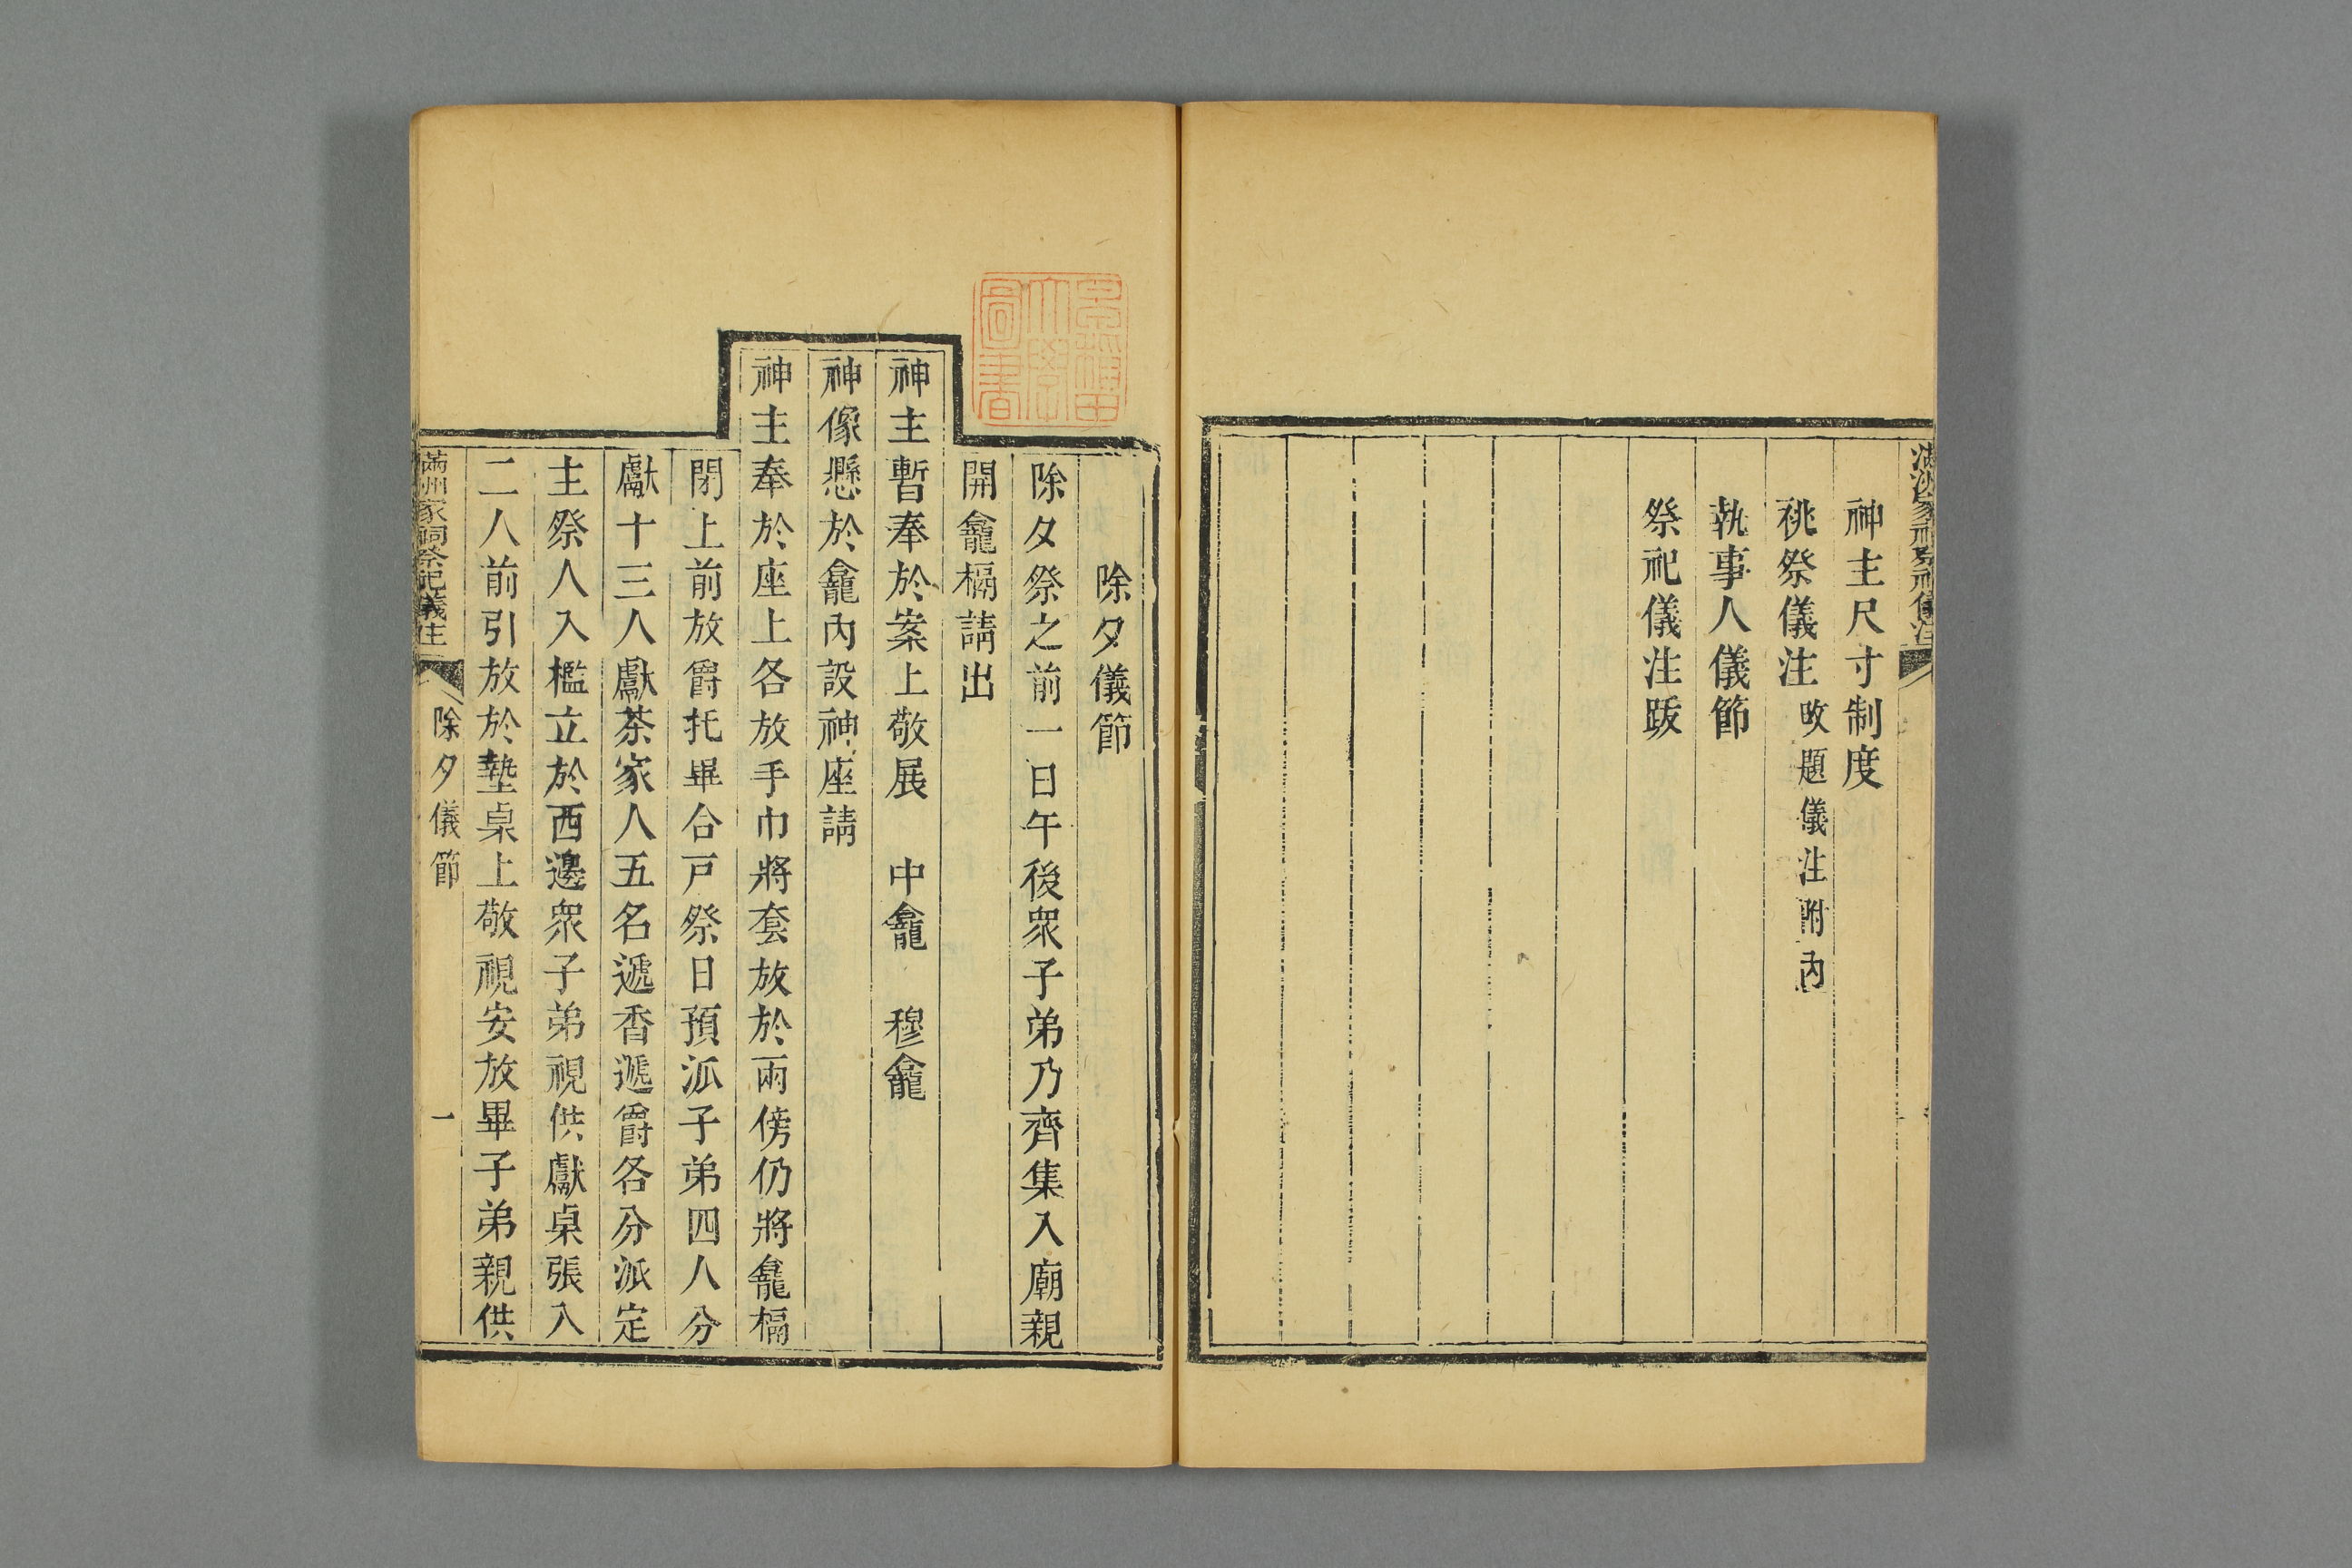 滿洲家祠祭祀儀注
神主尺寸制度
祧祭儀注 改題儀注附內
執事人儀節
祭祀儀注跋
早稲田大學圖書
除夕儀節
除夕祭之前一日午後衆子弟乃齊集入廟親
開龕槅請出
神主暫奉於案上敬展 中龕 穆龕
神像懸於龕內設神座請
神主奉於座上各放手巾將套放於兩傍仍將龕槅
閉上前放爵托畢合戸祭日預派子弟四人分
獻十三人獻茶家人五名遞香遞爵各分派定
主祭人入檻立於西邊衆子弟視供獻桌張入
二人前引放於墊桌上敬視安放畢子弟親供
滿洲家祠祭祀儀注 除夕儀節 一